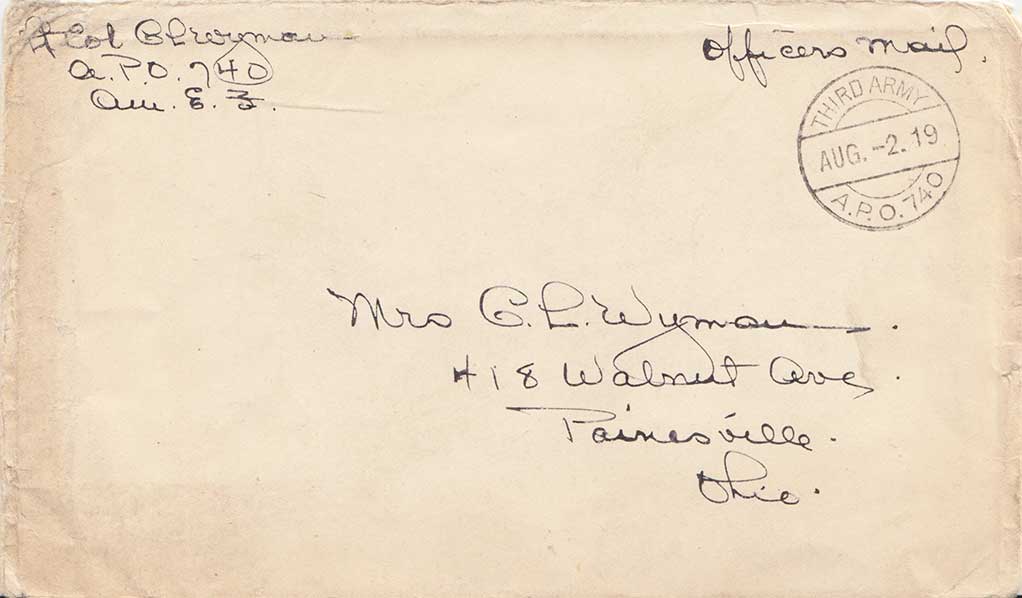 Lt Col C L Wyman
A.P.O. 740
Am. E. F.
Officers Mail.
THIRD ARMY
AUG. -2. 19
A.P.O. 740
Mrs C. L. Wyman.
418 Walnut Ave.
Painesville.
Ohio.